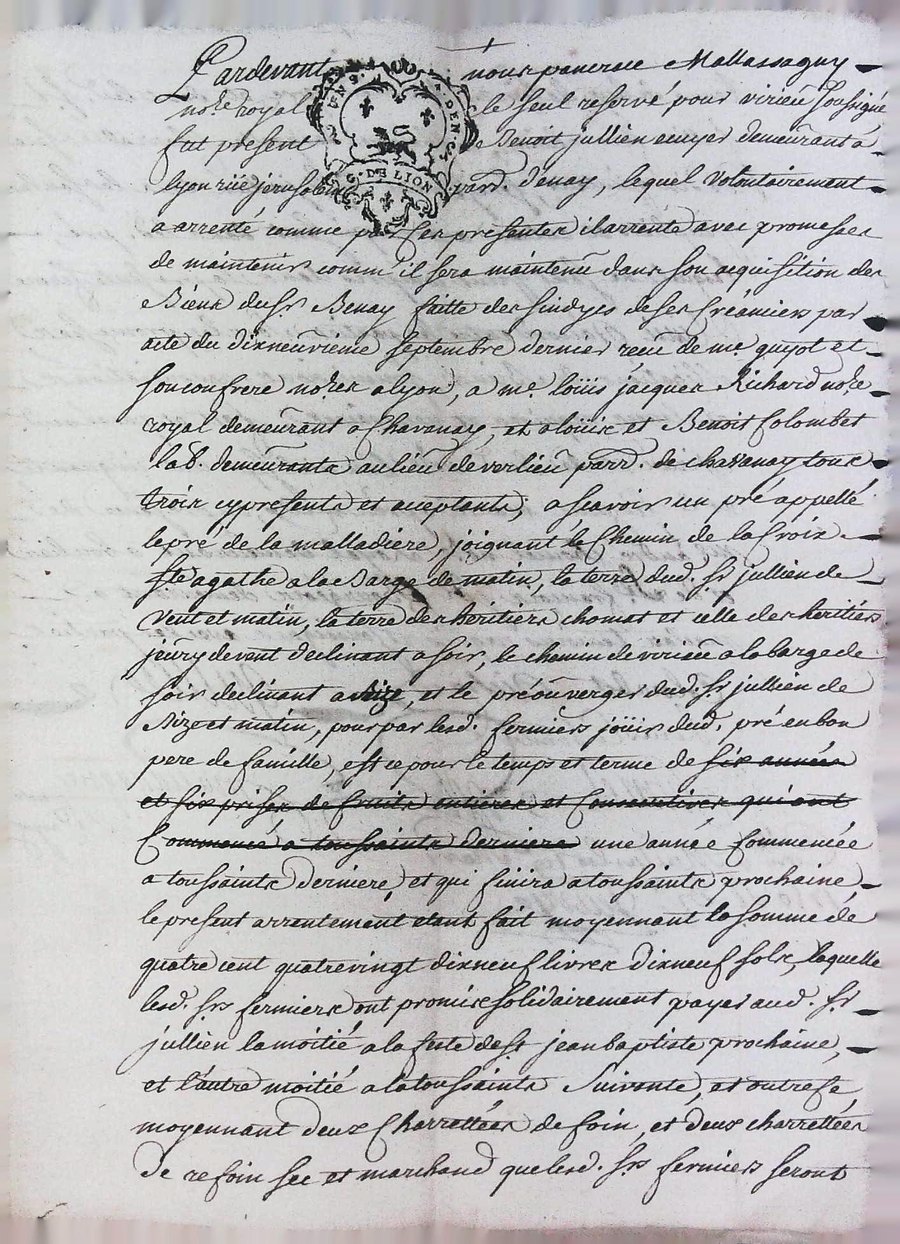 Pardevant nous pancrace Mallassagny
no.re royal le seul reservé pour virieu soussigné
fut present Benoit jullien ecuyer demeurant a
UN S. 4. DEN. C.
G. DE LION
lyon rüe jerusalem parr. d'enay, lequel volontairement
a arrenté comme par ces presentes il arrente avec promesses
de maintenir comm'il sera maintenu dans son acquisition des
Biens du Sr. Benay faitte des sindycs de ses Créanciers par
acte du dixneuvieme septembre dernier recu de me. guyot et
son confrere no.res a lyon, a me. loüis jacques Richard no.re
royal demeurant a Chavanay, et a loüis et Benoit Colombet
lab. demeurants au lieu de verlieu parr. de chavanay tous
trois cy presents et aceptants, a scavoir un pré appellé
le pré de la malladiere, joignant le Chemin de la Croix
Ste agathe a la Barge de matin, la terre dud. Sr jullien de
vent et matin, la terre des héritiers chomat et celle des héritiers
jeury de vent declinant a soir, le chemin de virieu a la barge de
soir declinant a bize, et le pré ou verger dud. Sr jullien de
Bize et matin, pour par lesd. fermiers joüir dud. pré en bon
pere de famille, est ce pour le temps et terme de six années
et six prises de fruits entieres et Consecutives qui ont
Commencé a toussaints derniere une année Commencée
a toussaints derniere, et qui finira a toussaints prochaine
le present arrentement etant fait moyennant la somme de
quatre cent quatrevingt dixneuf livres dixneuf sols, laquelle
lesd. Srs fermiers ont promis solidairement payer aud. Sr
jullien la moitié a la feste de St jean baptiste prochaine,
et l'autre moitié a la toussaints suivante, et outre ce
moyennant deux Charrettées de foin, et deux charrettées
de refoin sec et marchand que lesd. Srs fermiers seront